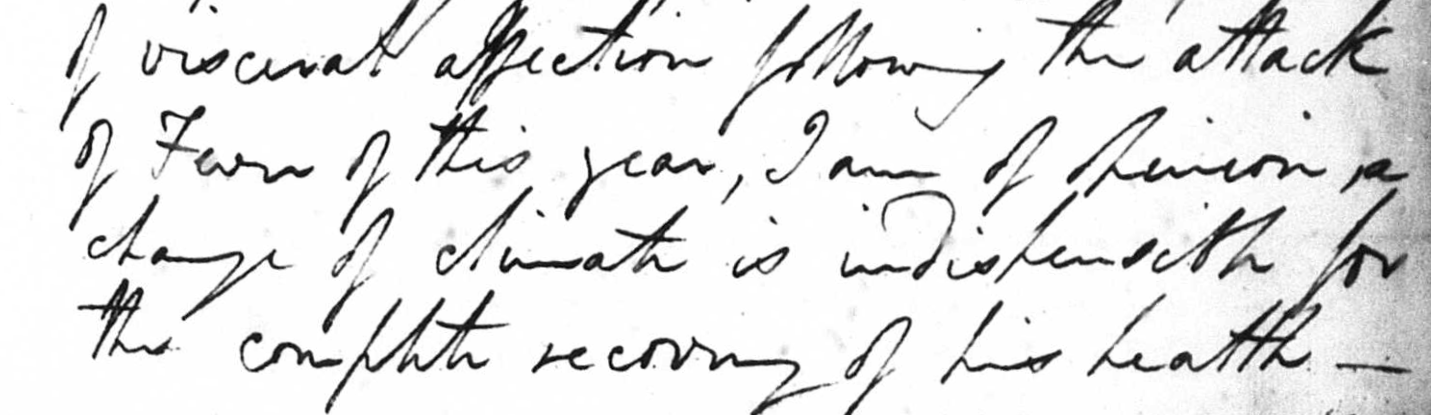 of visceral affection following the attack
of Fever of this year, I am of opinion, a
change of climate is indispensible for
the complete recovery of his health —